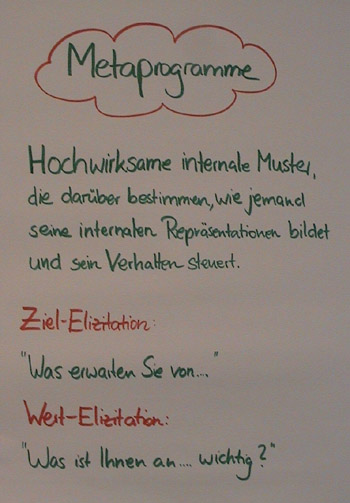 Metaprogramme
Hochwirksame internale Muster,
die darüber bestimmen, wie jemand
seine internalen Repräsentationen bildet
und sein Verhalten steuert.
Ziel-Elizitation:
"Was erwarten Sie von...."
Wert-Elizitation:
"Was ist Ihnen an.... wichtig?"